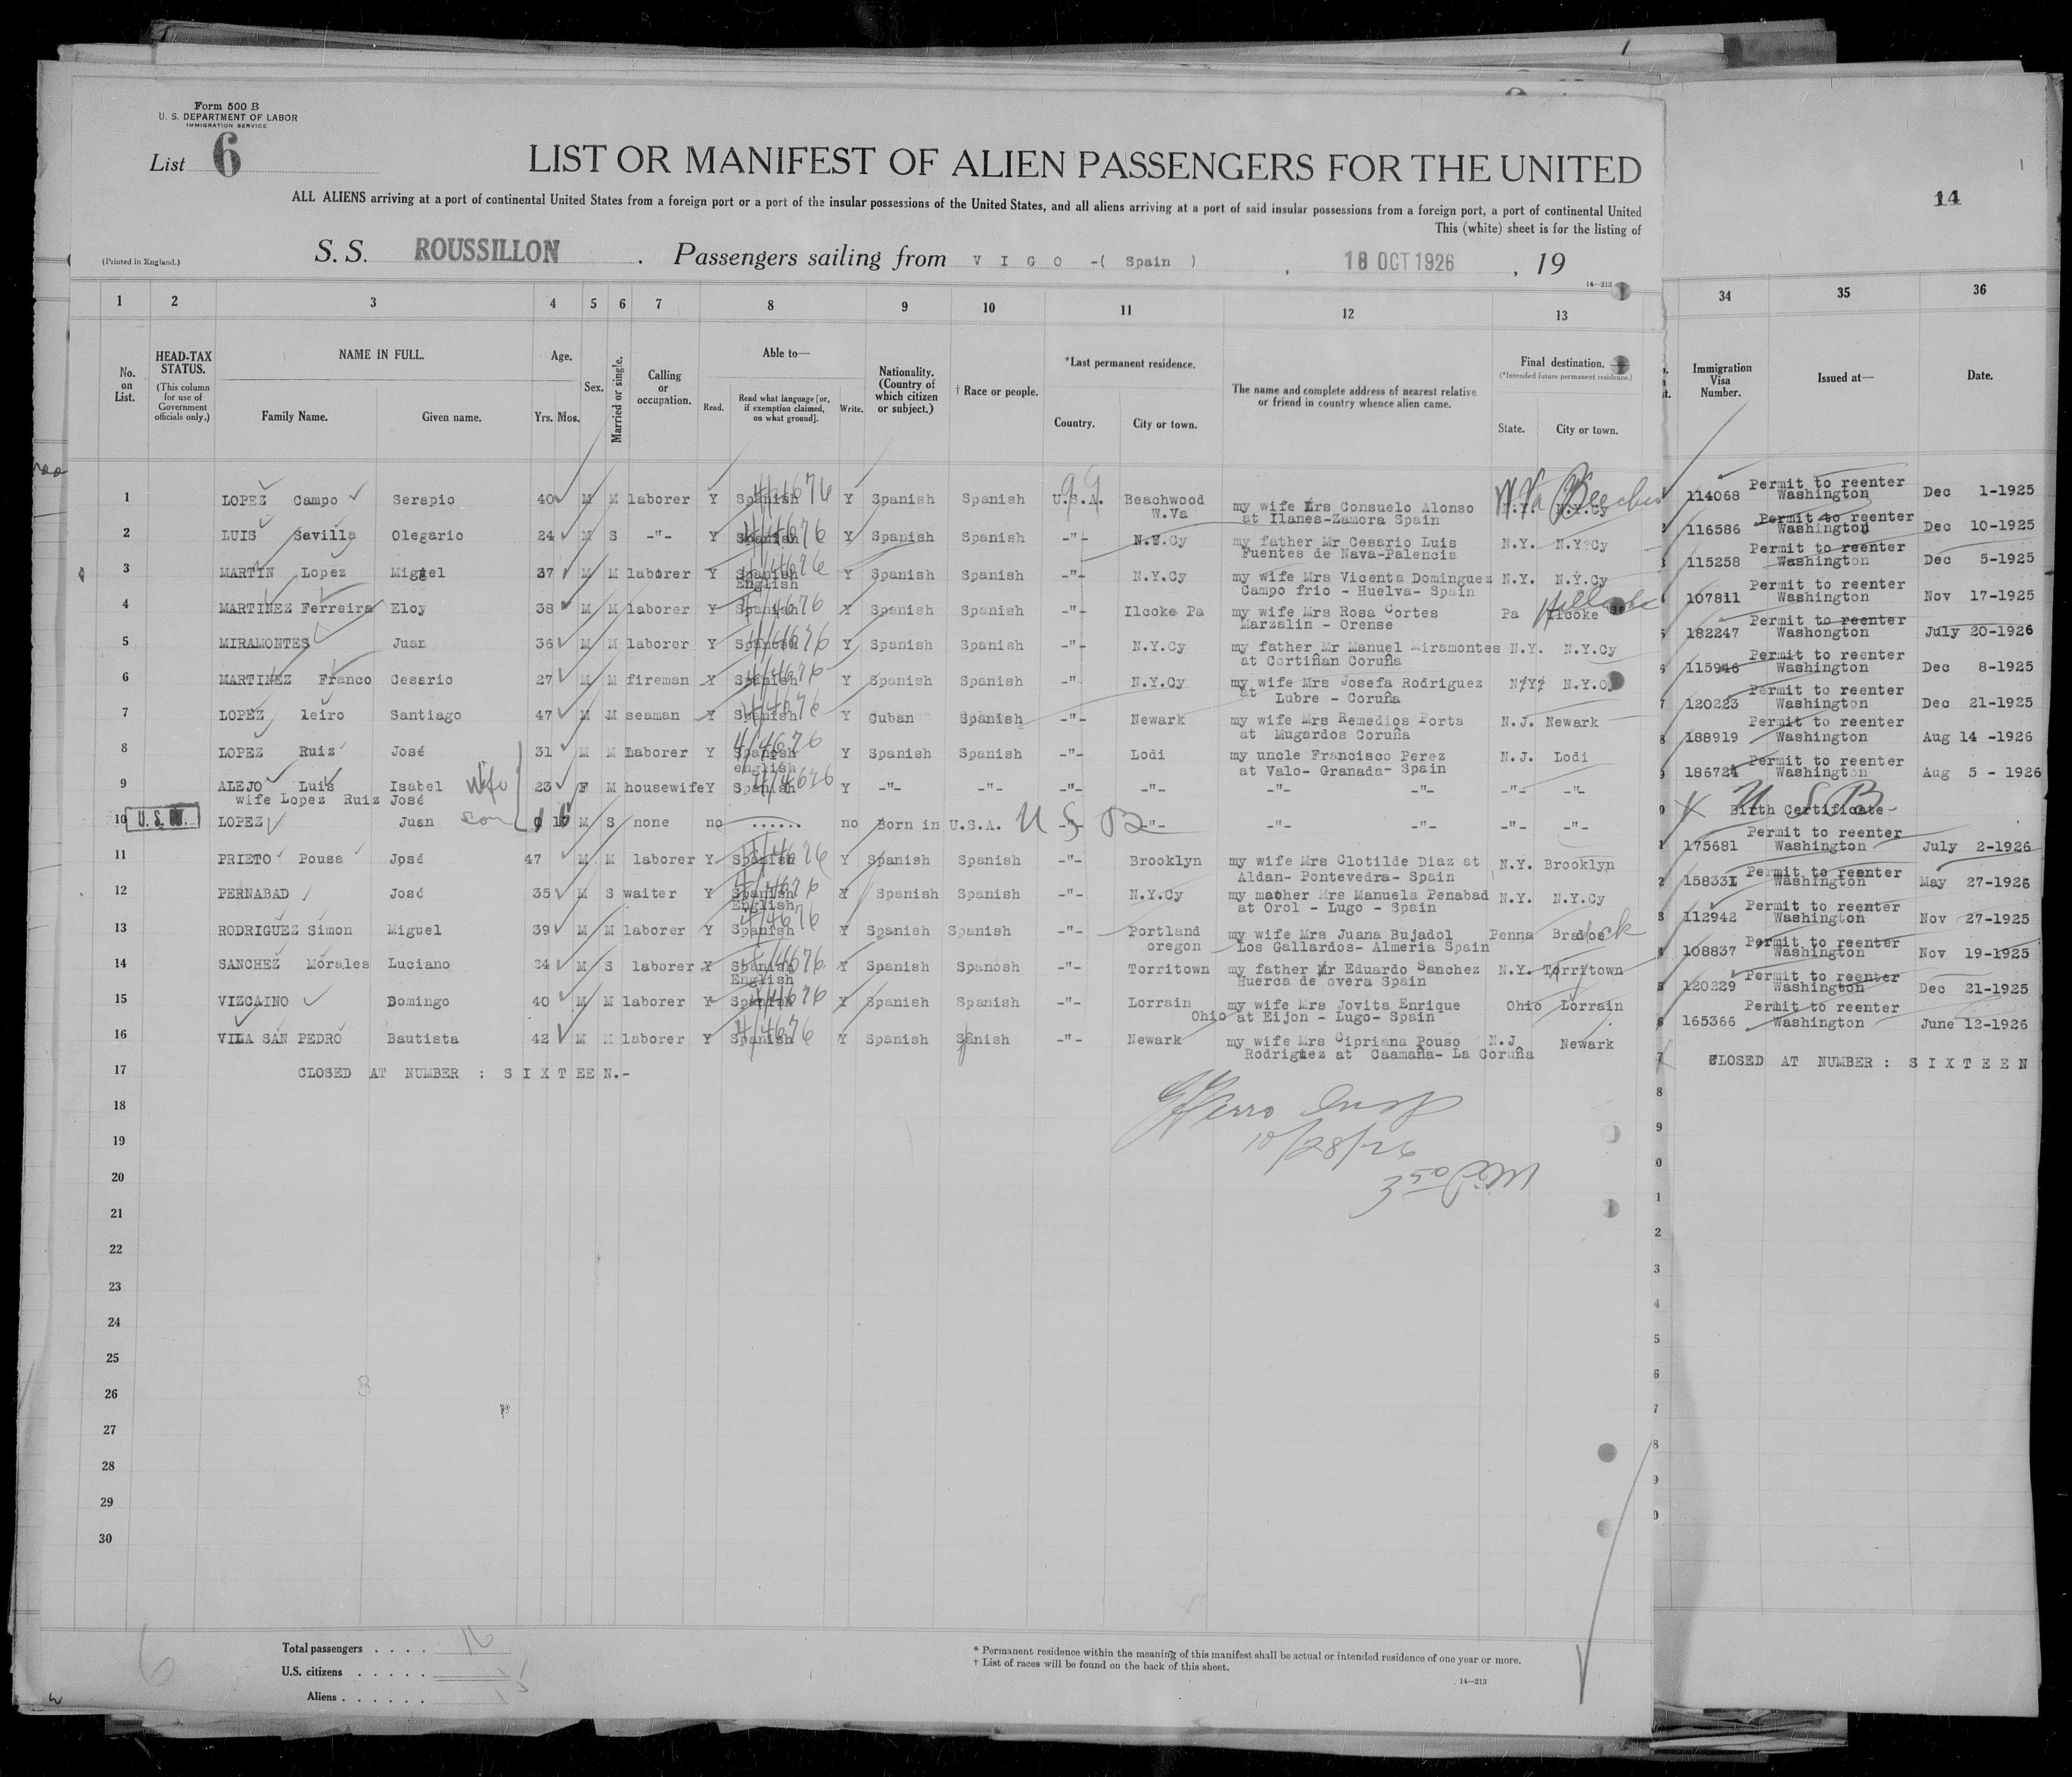 Form 500 B
U. S. DEPARTMENT OF LABOR
IMMIGRATION SERVICE
List 6
LIST OR MANIFEST OF ALIEN PASSENGERS FOR THE UNITED
ALL ALIENS arriving at a port of continental United States from a foreign port or a port of the insular possessions of the United States, and all aliens arriving at a port of said insular possessions from a foreign port, a port of continental United
This (white) sheet is for the listing of
(Printed in England.)
S. S. ROUSSILLON . Passengers sailing from V I G O -( Spain ) , 18 OCT 1926 , 19
14—213
14
1 2 3 4 5 6 7 8 9 10 11 12 13 34 35 36
No. on List.
HEAD-TAX STATUS.
(This column for use of Government officials only.)
NAME IN FULL.
Family Name. Given name.
Age.
Yrs. Mos.
Sex.
Married or single.
Calling or occupation.
Able to—
Read. Read what language [or, if exemption claimed, on what ground]. Write.
Nationality. (Country of which citizen or subject.)
† Race or people.
*Last permanent residence.
Country. City or town.
The name and complete address of nearest relative or friend in country whence alien came.
Final destination.
(*Intended future permanent residence.)
State. City or town.
Immigration Visa Number.
Issued at—
Date.
1 LOPEZ Campo Serapio 40 M M laborer Y Spanish Y Spanish Spanish U.S.A. Beachwood W.Va my wife Mrs Consuelo Alonso at Ilanes-Zamora Spain N.Y. N.Y.Cy W.Va 114068 Permit to reenter Washington Dec 1-1925
2 LUIS Sevilla Olegario 24 M S -"- Y Spanish Y Spanish Spanish -"- N.Y.Cy my father Mr Cesario Luis Fuentes de Nava-Palencia N.Y. N.Y?Cy 116586 Permit to reenter Washington Dec 10-1925
3 MARTIN Lopez Miguel 37 M M laborer Y Spanish English Y Spanish Spanish -"- N.Y.Cy my wife Mrs Vicenta Dominguez Campo frio - Huelva- Spain N.Y. N.Y.Cy 115258 Permit to reenter Washington Dec 5-1925
4 MARTINEZ Ferreira Eloy 38 M M laborer Y Spanish Y Spanish Spanish -"- Ilcoke Pa my wife Mrs Rosa Cortes Marzalin - Orense Pa Ilcoke 107811 Permit to reenter Washington Nov 17-1925
5 MIRAMONTES Juan 36 M M laborer Y Spanosh Y Spanish Spanish -"- N.Y.Cy my father Mr Manuel Miramontes at Cortiñan Coruña N.Y. N.Y.Cy 182247 Permit to reenter Washongton July 20-1926
6 MARTINEZ Franco Cesario 27 M M fireman Y Spanish Y Spanish Spanish -" N.Y.Cy my wife Mrs Josefa Rodriguez at Lubre - Coruña N?Y? N.Y.Cy 115946 Permit to reenter Washington Dec 8-1925
7 LOPEZ leiro Santiago 47 M M seaman Y Spanish Y Cuban Spanish -"- Newark my wife Mrs Remedios Porta at Mugardos Coruña N.J. Newark 120223 Permit to reenter Washington Dec 21-1925
8 LOPEZ Ruiz José 31 M M laborer Y Spanosh english Y Spanish Spanish -"- Lodi my uncle Francisco Perez at Valo- Granada- Spain N.J. Lodi 188919 Permit to reenter Washington Aug 14 -1926
9 ALEJO Luis Isabel Wife 23 F M housewife Y Spanish Y -"- -"- -"- -"- -"- -"- -"- -"- 186724 Permit to reenter Washington Aug 5 - 1926
wife Lopez Ruiz José
10 LOPEZ Juan son M S none no ...... no Born in U.S.A. U S B -"- -"- -"- -"- -"- -"- U S B Birth Certificate
11 PRIETO Pousa José 47 M M laborer Y Spanish Y Spanish Spanish -"- Brooklyn my wife Mrs Clotilde Diaz at Aldan- Pontevedra- Spain N.Y. Brooklyn 175681 Permit to reenter Washington July 2-1926
12 PERNABAD José 35 M S waiter Y Spanish English Y Spanish Spanish -"- N.Y.Cy my mother Mrs Manuela Penabad at Orol - Lugo - Spain N.Y. N.Y.Cy 158331 Permit to reenter Washington May 27-1926
13 RODRIGUEZ Simon Miguel 39 M M laborer Y Spanish Y Spanish Spanish -"- Portland oregon my wife Mrs Juana Bujadol Los Gallardos- Almeria Spain Penna 112942 Permit to reenter Washington Nov 27-1925
14 SANCHEZ Morales Luciano 24 M S laborer Y Spanish English Y Spanish Spanosh -"- Torritown my father Mr Eduardo Sanchez Huerca de overa Spain N.Y. Torritown 108837 Permit to reenter Washington Nov 19-1925
15 VIZCAINO Domingo 40 M M laborer Y Spanish Y Spanish Spanish -"- Lorrain Ohio my wife Mrs Jovita Enrique at Eijon - Lugo- Spain Ohio Lorrain 120229 Permit to reenter Washington Dec 21-1925
16 VILA SAN PEDRO Bautista 42 M M laborer Y Spanish Y Spanish Spanish -"- Newark my wife Mrs Cipriana Pouso Rodriguez at Caamaña- La Coruña N.J Newark 165366 Permit to reenter Washington June 12-1926
17 CLOSED AT NUMBER : S I X T E E N.- CLOSED AT NUMBER : S I X T E E N
U.S.
18
19
10/28/26
20
21
22
23
24
25
26
27
28
29
30
Total passengers . . . . 16
U.S. citizens . . . . . 1
Aliens . . . . . . 15
* Permanent residence within the meaning of this manifest shall be actual or intended residence of one year or more.
† List of races will be found on the back of this sheet.
14—213
6